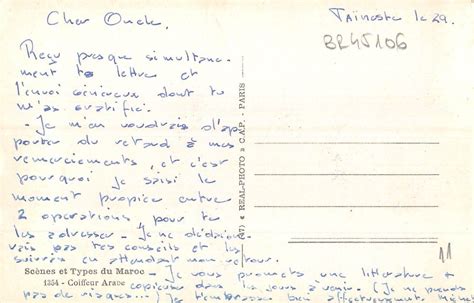 Cher Oncle.
Taïneste le 29.
BR45106
Reçu presque simultané-
ment ta lettre et
l'envoi généreux dont tu
m'as gratifié.
- Je m'en voudrais d'ap
porter du retard à mes
remerciements, et c'est
pourquoi je saisi le
moment propice entre
2 opérations pour te
les adresser. - Je ne dédaigne
rais pas tes conseils et les
suivrai en attendant mon retour.
- Je vous promets une littérature +
copieuse dans les jours à venir. (Je ne prends
pas de risques...) Je t'embrasse bien affectueusement
Scènes et Types du Maroc
1354 - Coiffeur Arabe
(A7) « REAL-PHOTO » C.A.P. - PARIS
11